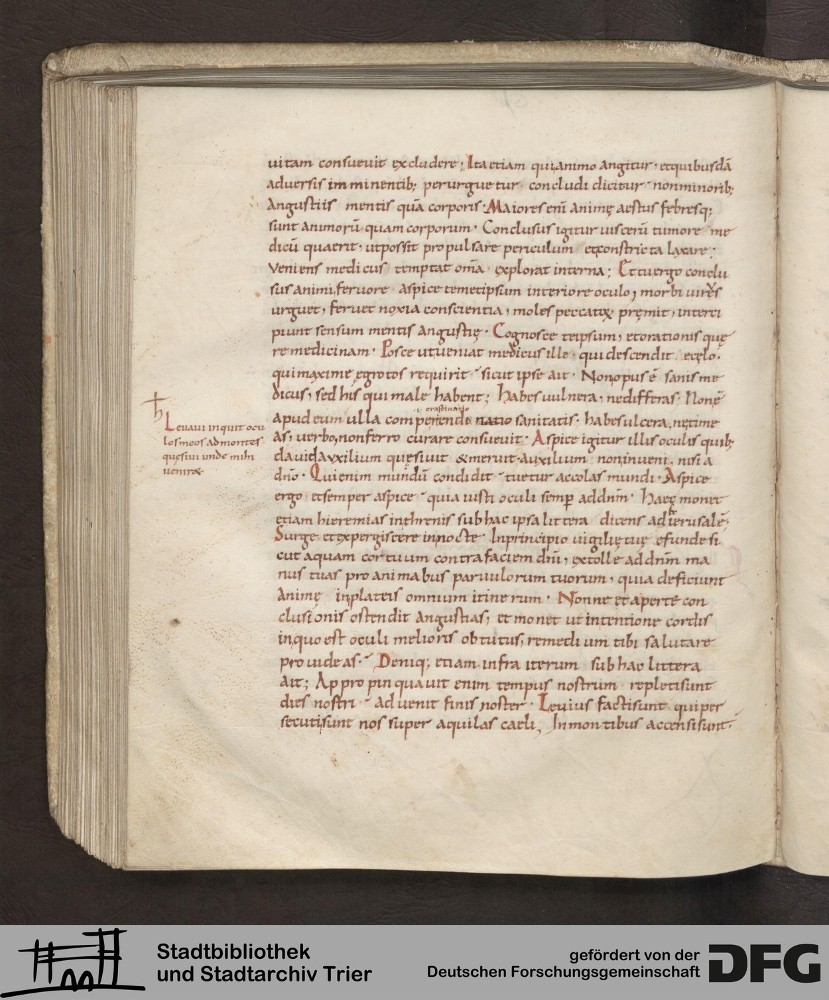 uitam consueuit excludere; Ita etiam qui animo angitur· et quibusdā
aduersis imminentib; perurguetur· concludi dicitur· non minorib;
angustiis mentis quā corporis· Maiores enī animę aestus febresq;
sunt animorū quam corporum· Conclusus igitur uiscerū tumore me
dicū quaerit· ut possit propulsare periculum et constricta laxare·
Veniens medicus temptat om̄a· explorat interna; Et tu ergo conclu
sus animi feruore· aspice temetipsum interiore oculo, morbi uires
urguet, feruet noxia conscientia, moles peccatoꝝ premit, interci
piunt sensum mentis angustię· Cognosce teipsum, et orationis quę
re medicinam· Posce ut ueniat medicus ille· qui descendit e cęlo·
qui maxime egrotos requirit· sicut ipse ait· Non opus ē sanis me
dicus, sed his qui male habent; Habes uulnera, ne differas· Non ē
crastina
apud eum ulla comperendinatio sanitatis· habes ulcera, ne time
as, uerbo, non ferro curare consueuit· Aspice igitur illis oculis quib;
dauid auxilium quęsiuit & meruit· Auxilium non inueni, nisi a
dn̄o· Qui enim mundū condidit· tuetur accolas mundi· Aspice
ergo et semper aspice· quia iusti oculi semp̄ ad dn̄m· Haec monet
etiam hieremias in threnis sub hac ipsa littera dicens ad ierusalē;
Surge· et expergiscere in nocte· In principio uigilię tuę efunde si
cut aquam cor tuum contra faciem dn̄i, extolle ad dn̄m ma
nus tuas pro animabus paruulorum tuorum, quia deficiunt
animę in plateis omnium itinerum· Nonne et aperte con
clusionis ostendit angustias, et monet ut intentione cordis
in quo est oculi melioris obtutus, remedium tibi salutare
prouideas· Deniq; etiam infra iterum sub hac littera
ait; Appropinquauit enim tempus nostrum· repleti sunt
dies nostri· aduenit finis noster· Leuius facti sunt qui per
secuti sunt nos super aquilas caeli, In montibus accensi sunt·
Leuaui inquit ocu
los meos ad montes
quęsiui unde mihi
Stadtbibliothek
und Stadtarchiv Trier
gefördert von der
Deutschen Forschungsgemeinschaft
DFG